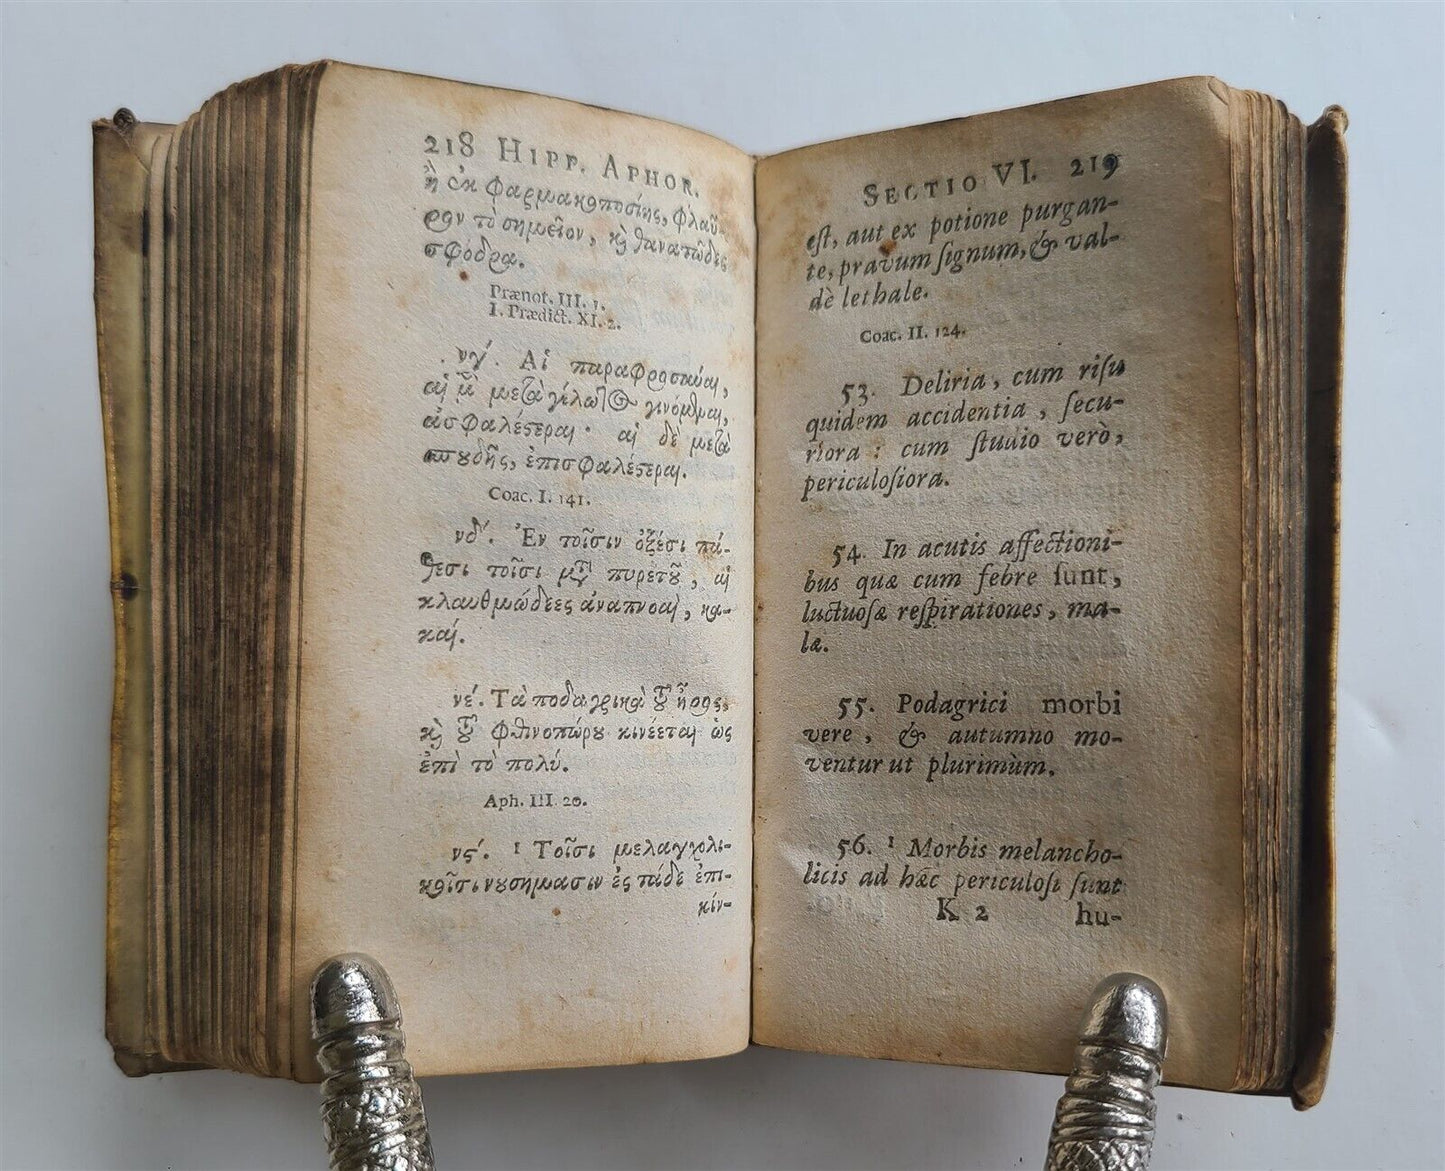 218 HIPP. APHOR.
ἢ ἐκ φαρμακοποσίης, φλαῦ-
ρον τὸ σημεῖον, κỳ θανατῶδες
σφόδρα.
Prænot. III. 1.
I. Prædict. XI. 2.
νγ΄. Αἱ παραφροσύναι,
αἱ μ̀ μετὰ γέλωτος γινόμεναι,
ἀσφαλέςεραι· αἱ δὲ μετὰ
σπουδῆς, ἐπισφαλέςεραι.
Coac. I. 141.
νδ΄. Ἐν τοῖσιν ὀξέσι πά-
θεσι τοῖσι μετὰ πυρετοῦ, αἱ
κλαυθμώδεες ἀναπνοαὶ, κα-
καί.
νέ. Τὰ ποδαγρικὰ τοῦ ἦρος,
κỳ τοῦ φθινοπώρου κινέεται ὡς
ἐπὶ τὸ πολύ.
Aph. III. 20.
νς΄. 1 Τοῖσι μελαγχολι-
κοῖσι νουσήμασιν ἐς τάδε ἐπι-
κίν-
SECTIO VI. 219
eſt, aut ex potione purgan-
te, pravum ſignum, & val-
dè lethale.
Coac. II. 124.
53. Deliria, cum riſu
quidem accidentia, ſecu-
riora: cum ſtudio verò,
periculoſiora.
54. In acutis affectioni-
bus quæ cum febre ſunt,
luctuoſæ reſpirationes, ma-
læ.
55. Podagrici morbi
vere, & autumno mo-
ventur ut plurimùm.
56. 1 Morbis melancho-
licis ad hæc periculoſi ſunt
K 2 hu-